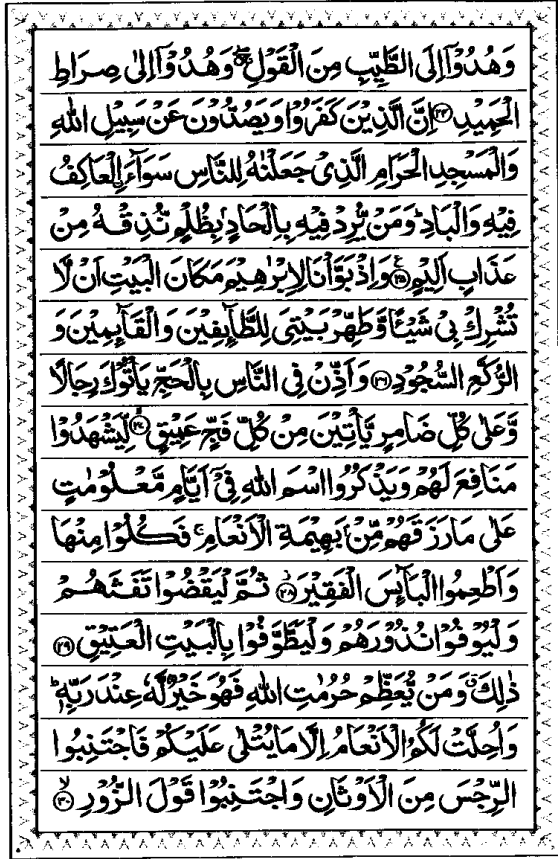 وَهُدُوْٓا اِلَى الطَّيِّبِ مِنَ الْقَوْلِ ۖۚ وَهُدُوْٓا اِلٰى صِرَاطِ
الْحَمِيْدِ ﴿۲۴﴾ اِنَّ الَّذِيْنَ كَفَرُوْا وَيَصُدُّوْنَ عَنْ سَبِيْلِ اللّٰهِ
وَالْمَسْجِدِ الْحَرَامِ الَّذِيْ جَعَلْنٰهُ لِلنَّاسِ سَوَآءَ ۨالْعَاكِفُ
فِيْهِ وَالْبَادِ ؕ وَمَنْ يُّرِدْ فِيْهِ بِاِلْحَادٍۭ بِظُلْمٍ نُّذِقْهُ مِنْ
عَذَابٍ اَلِيْمٍ ﴿۲۵﴾ ع وَاِذْ بَوَّاْنَا لِاِبْرٰهِيْمَ مَكَانَ الْبَيْتِ اَنْ لَّا
تُشْرِكْ بِيْ شَيْـًٔا وَّطَهِّرْ بَيْتِيَ لِلطَّآئِفِيْنَ وَالْقَآئِمِيْنَ وَ
الرُّكَّعِ السُّجُوْدِ ﴿۲۶﴾ وَاَذِّنْ فِي النَّاسِ بِالْحَجِّ يَاْتُوْكَ رِجَالًا
وَّعَلٰى كُلِّ ضَامِرٍ يَّاْتِيْنَ مِنْ كُلِّ فَجٍّ عَمِيْقٍ ﴿۲۷﴾ۙ لِّيَشْهَدُوْا
مَنَافِعَ لَهُمْ وَيَذْكُرُوا اسْمَ اللّٰهِ فِيْٓ اَيَّامٍ مَّعْلُوْمٰتٍ
عَلٰى مَا رَزَقَهُمْ مِّنْۢ بَهِيْمَةِ الْاَنْعَامِ ۚ فَكُلُوْا مِنْهَا
وَاَطْعِمُوا الْبَآئِسَ الْفَقِيْرَ ﴿۲۸﴾ؗ ثُمَّ لْيَقْضُوْا تَفَثَهُمْ
وَلْيُوْفُوْا نُذُوْرَهُمْ وَلْيَطَّوَّفُوْا بِالْبَيْتِ الْعَتِيْقِ ﴿۲۹﴾
ذٰلِكَ ۗ وَمَنْ يُّعَظِّمْ حُرُمٰتِ اللّٰهِ فَهُوَ خَيْرٌ لَّهٗ عِنْدَ رَبِّهٖ ؕ
وَاُحِلَّتْ لَكُمُ الْاَنْعَامُ اِلَّا مَا يُتْلٰى عَلَيْكُمْ فَاجْتَنِبُوا
الرِّجْسَ مِنَ الْاَوْثَانِ وَاجْتَنِبُوْا قَوْلَ الزُّوْرِ ﴿۳۰﴾ۙ